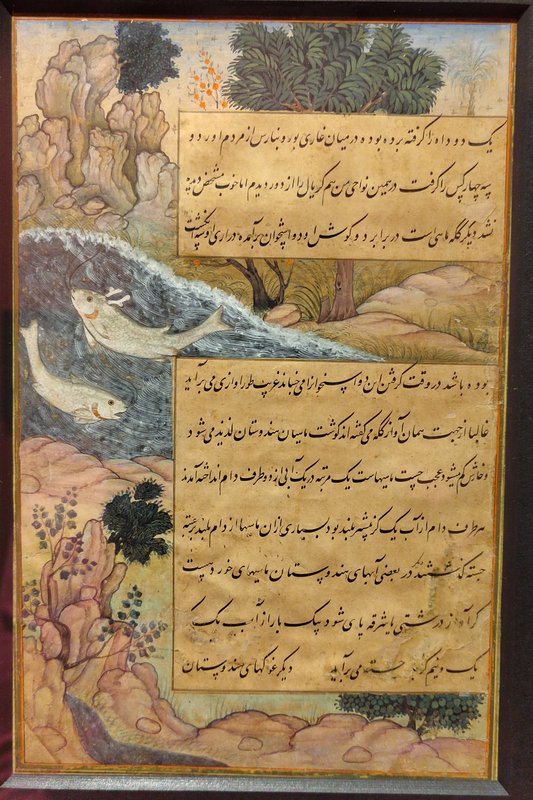 یک دو داه را گرفته برده بوده در میان غازی پور و بنارس از مردم اوردو
سه چهار کس را گرفت در همین نواحی من هم گریال را از دور دیدم اما خوب مشخص دیده
نشد دیگر کله ماهی است در برابر دو گوش او دو استخوان برآمده درازی او سه انگشت
بوده باشد در وقت گرفتن این دو استخوان را می جنباند غریب طور آوازی می برآید
غالبا از جهت همان آواز کله می گفته اند گوشت ماهیان هندوستان لذیذ می شود
و خارش کم میشود عجب چست ماهیهاست یک مرتبه در یک آبی از دو طرف دام انداخته آمدند
هر طرف دام از آب یک گز بیشتر بلند بود بسیاری ازان ماهیها از دام بلند برجسته
جسته گذشتند در بعضی آبهای هندوستان ماهیهای خورد هست
که آواز درشتی یا شرقه پای شود یک بار از آب یک
یک و نیم گز جسته می برآید دیگر غوکهای هندوستان